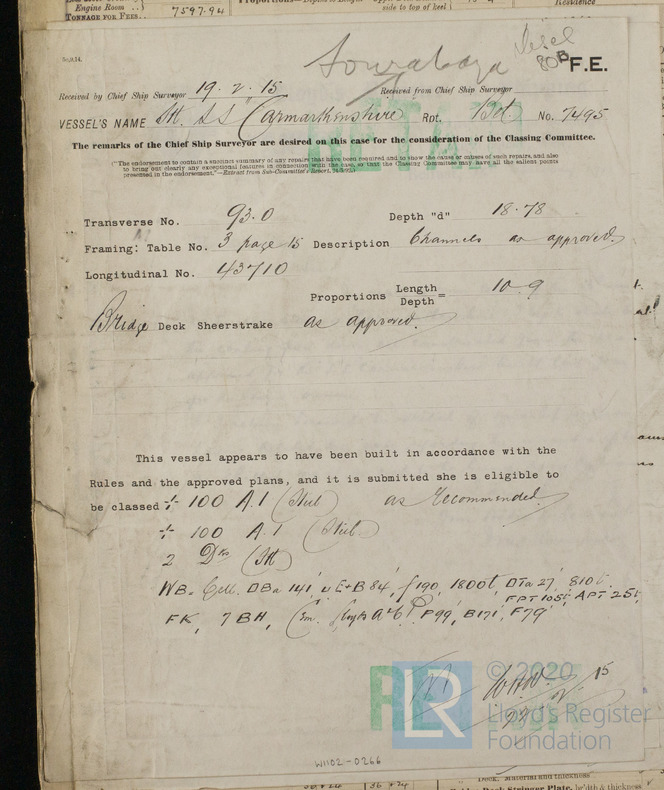 Engine Room
TONNAGE FOR FEES..
7597.94
side to top of keel
Residence
F.E.
Received by Chief Ship Surveyor 19.2.15 Received from Chief Ship Surveyor
VESSEL'S NAME SS Carmarthenshire Rpt. No. 7495
The remarks of the Chief Ship Surveyor are desired on this case for the consideration of the Classing Committee.
("The endorsement to contain a succinct summary of any repairs that have been required and to show the cause or causes of such repairs, and also
to bring out clearly any exceptional features in connection with the case, so that the Classing Committee may have all the salient points
presented in the endorsement."—Extract from Sub-Committee's Report,
RETAIN
Transverse No. 93.0 Depth "d" 18.78
Framing: Table No. 3 page 15 Description Channels as approved.
Longitudinal No. 43710
Proportions Length
Depth = 10.9
Bridge Deck Sheerstrake as approved.
This vessel appears to have been built in accordance with the
Rules and the approved plans, and it is submitted she is eligible to
be classed 100 A.1 (Steel) as Recommended.
100 A.1 (Steel)
2 Dks (Stl)
WB. Cell. DBa 141', u E+B 84', f 190, 1800t, DTa 27, 810t.
FPT 105t, APT 25t,
FK, 7BH, P99', B171', F79'
15
LR
© 2020
Lloyd's Register
Foundation
W1102-0266